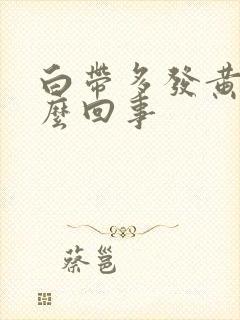 白帶多發黃
麼回事
蔡邕